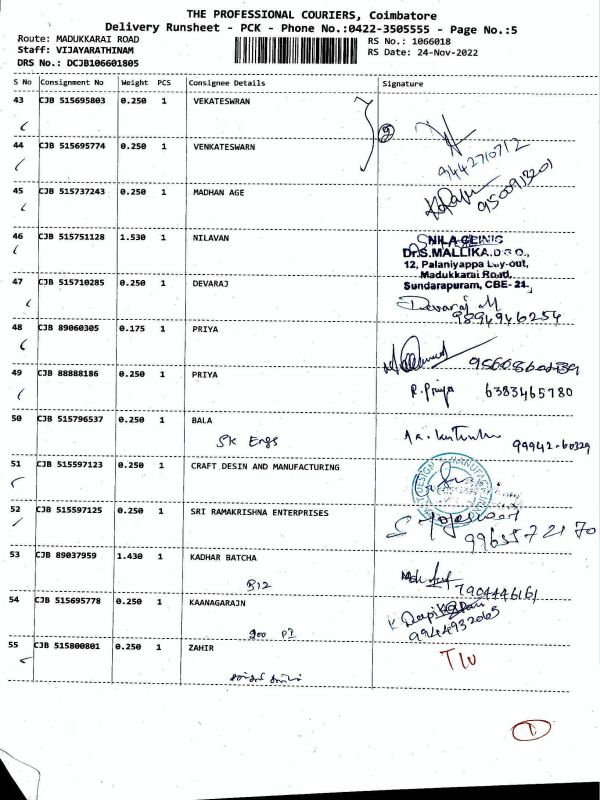 THE PROFESSIONAL COURIERS, Coimbatore
Delivery Runsheet - PCK - Phone No.:0422-3505555 - Page No.:5
Route: MADUKKARAI ROAD
RS No.: 1066018
Staff: VIJAYARATHINAM
RS Date: 24-Nov-2022
DRS No.: DCJB106601805
S No Consignment No Weight PCS Consignee Details Signature
43 CJB 515695803 0.250 1 VEKATESWRAN
2
44 CJB 515695774 0.250 1 VENKATESWARN
9442710712
45 CJB 515737243 0.250 1 MADHAN AGE
9500913201
46 CJB 515751128 1.530 1 NILAVAN
NILA CLINIC
Dr.S.MALLIKA,D.G.O.,
12, Palaniyappa Lay-out,
Madukkarai Road,
Sundarapuram, CBE- 21.
47 CJB 515710285 0.250 1 DEVARAJ
Devaraj M
9894946254
48 CJB 89060305 0.175 1 PRIYA
49 CJB 88888186 0.250 1 PRIYA
R. Priya 6383465780
50 CJB 515796537 0.250 1 BALA
SK Engs
99942-60329
51 CJB 515597123 0.250 1 CRAFT DESIN AND MANUFACTURING
52 CJB 515597125 0.250 1 SRI RAMAKRISHNA ENTERPRISES
9965572170
53 CJB 89037959 1.430 1 KADHAR BATCHA
B12
7904446161
54 CJB 515695778 0.250 1 KAANAGARAJN
9944932065
55 CJB 515800801 0.250 1 ZAHIR
1